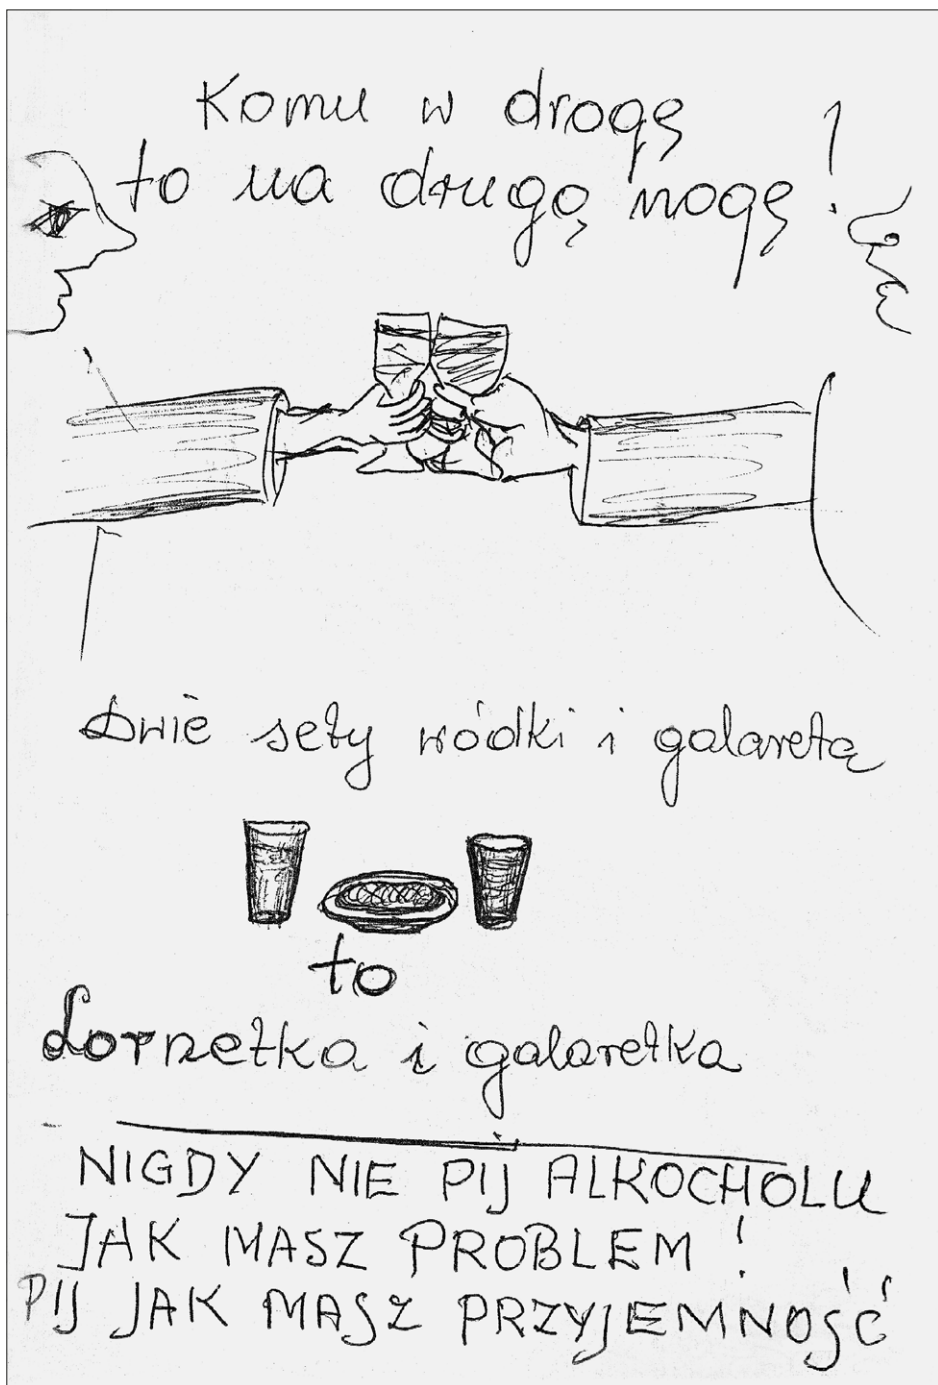 Komu w drogę
to na drugą nogę!
Dwie sety wódki i galareta
to
Lornetka i galaretka
NIGDY NIE PIJ ALKOCHOLU
JAK MASZ PROBLEM!
PIJ JAK MASZ PRZYJEMNOŚĆ